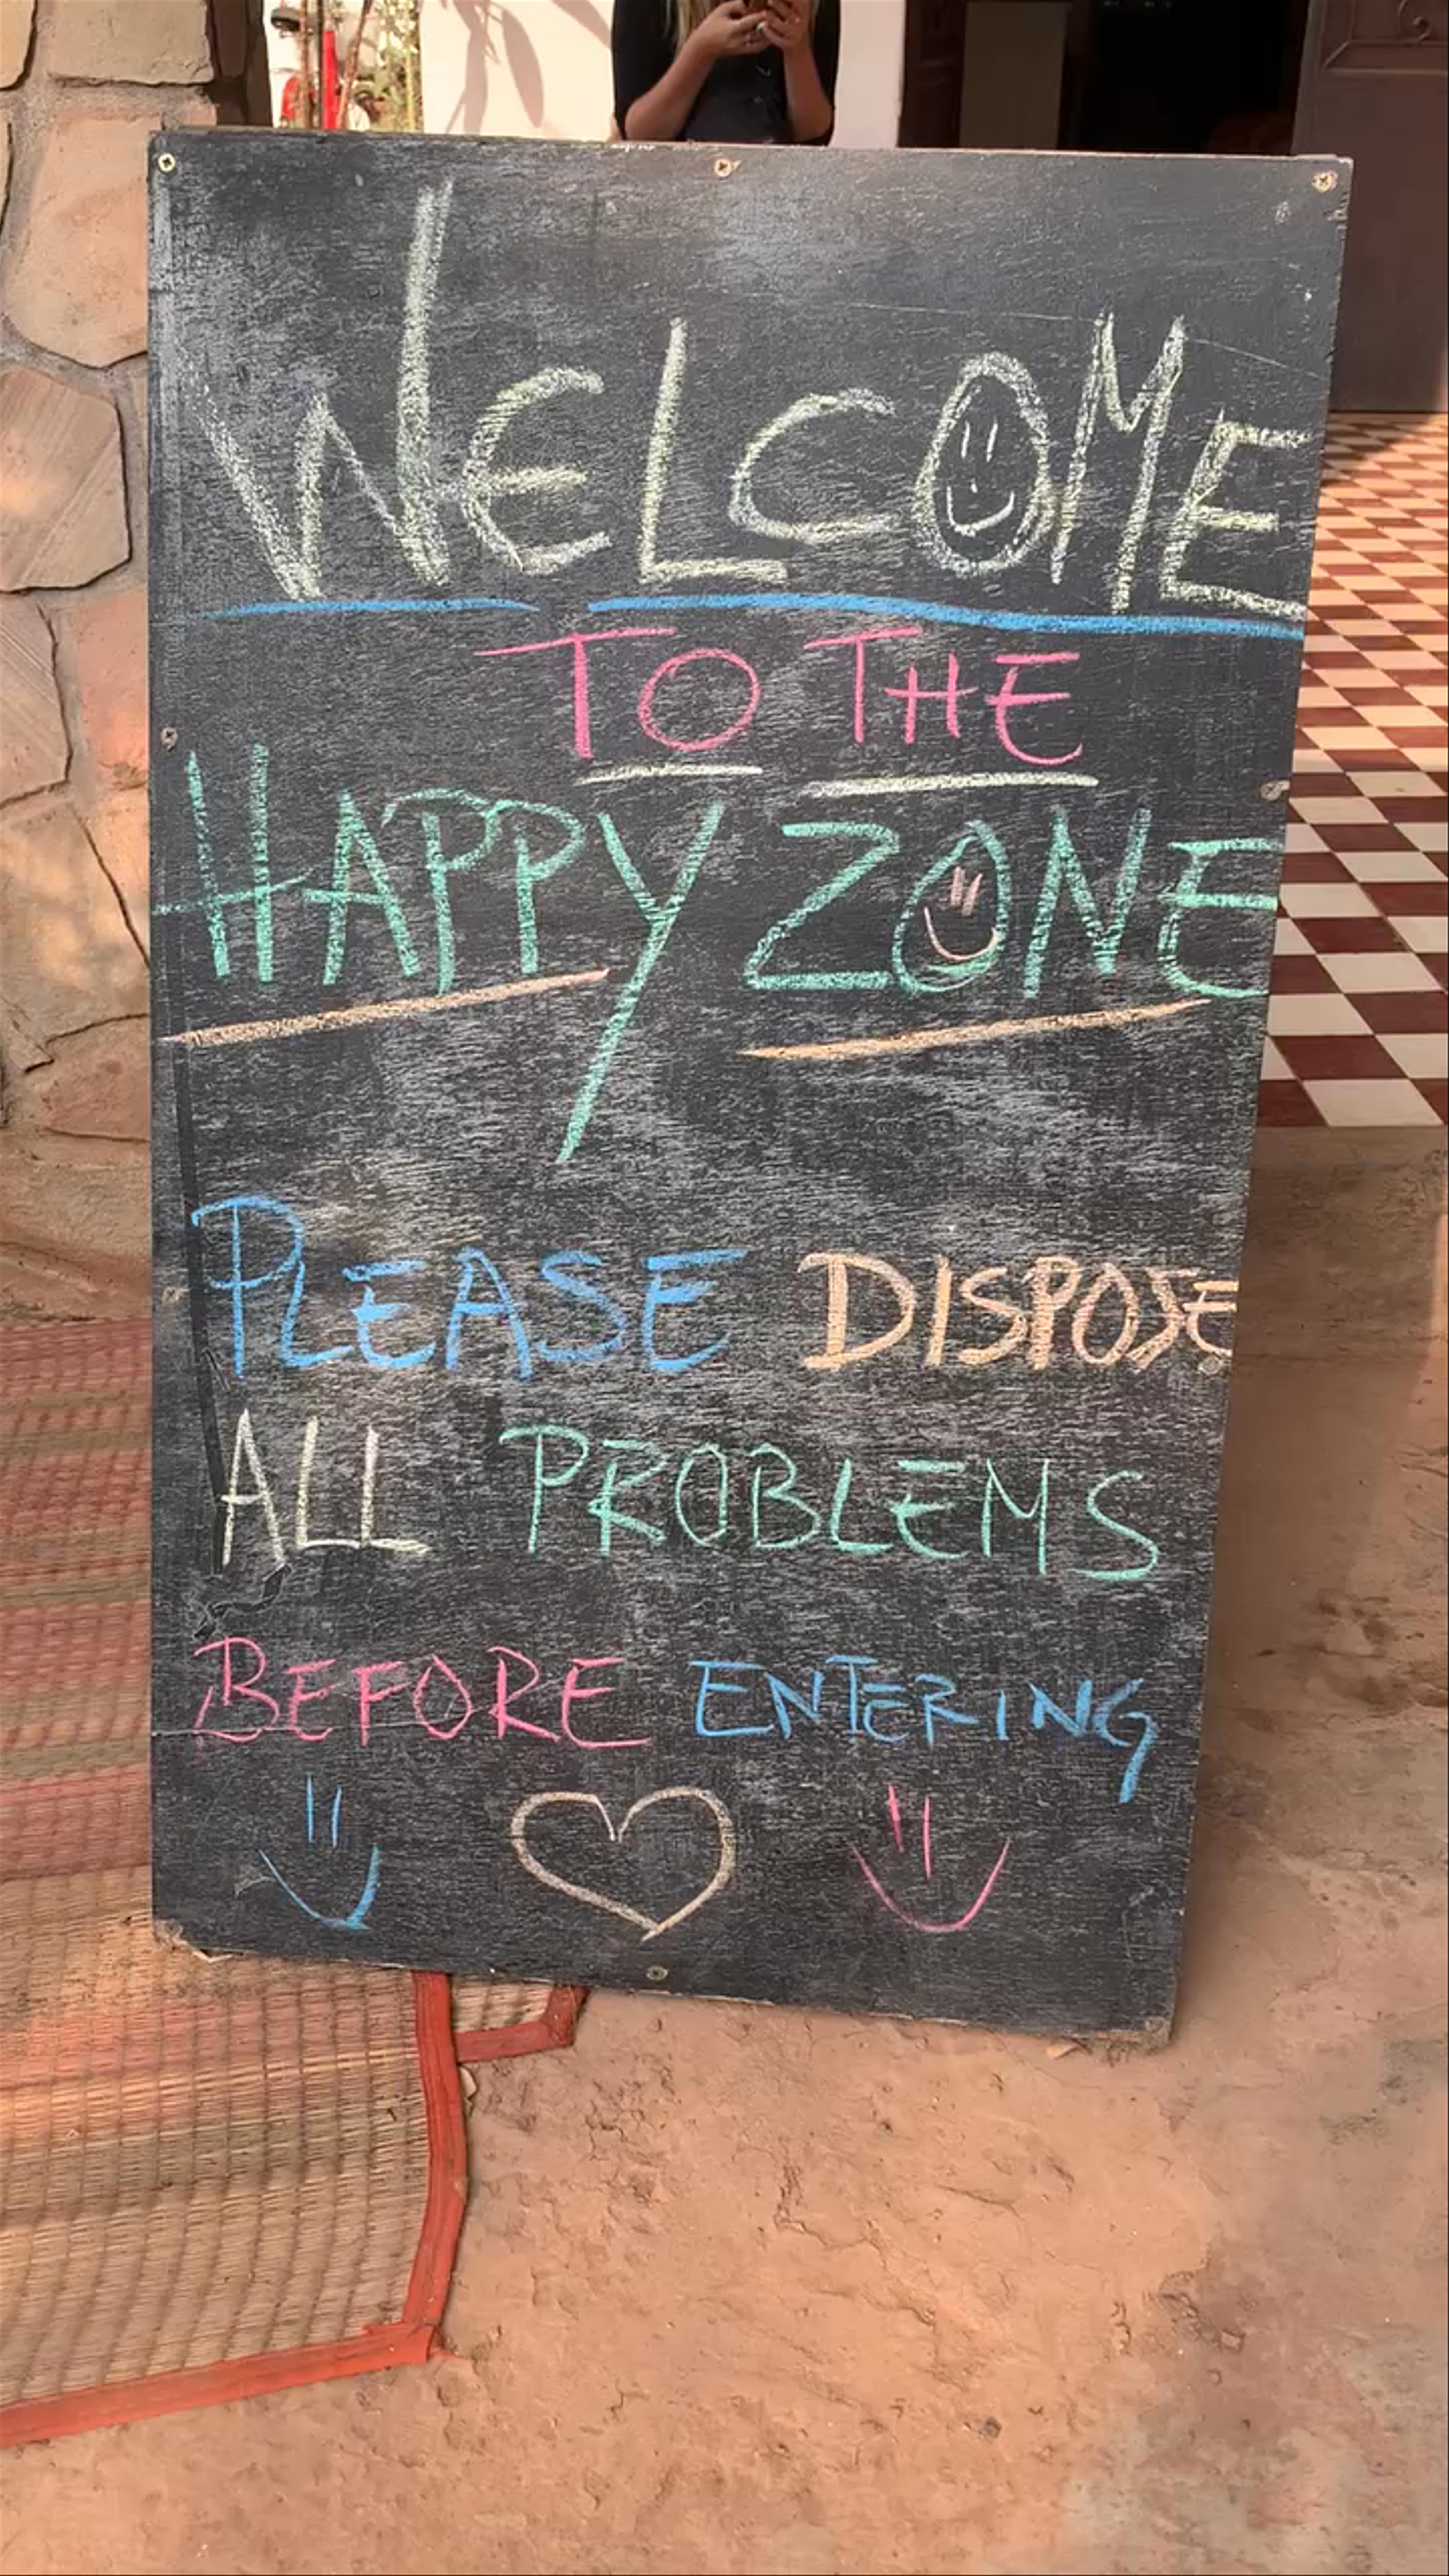 WELCOME
TO THE
HAPPY ZONE
PLEASE DISPOSE
ALL PROBLEMS
BEFORE ENTERING